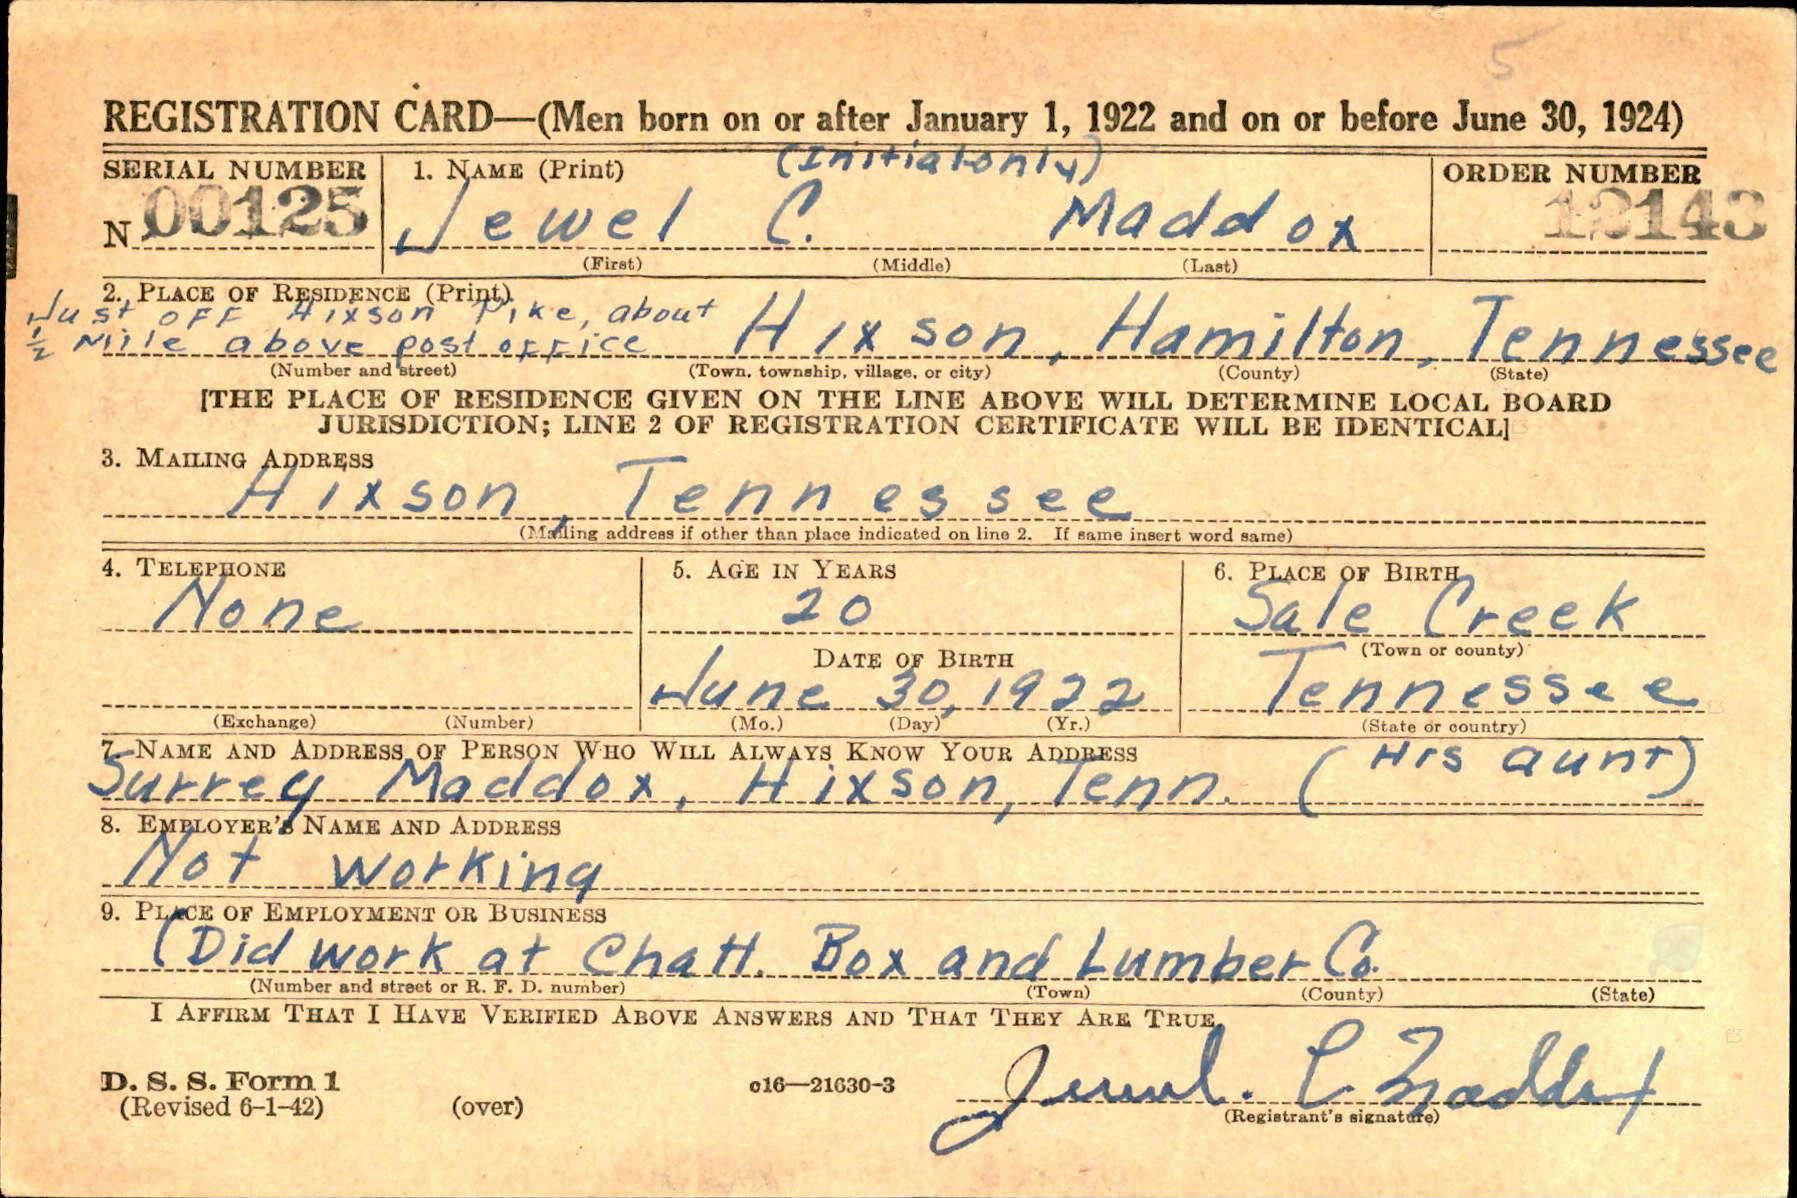 5
REGISTRATION CARD—(Men born on or after January 1, 1922 and on or before June 30, 1924)
SERIAL NUMBER
1. NAME (Print)
(Initial only)
ORDER NUMBER
N 00125
Jewel C. Maddox
12143
(First) (Middle) (Last)
2. PLACE OF RESIDENCE (Print)
Just off Hixson Pike, about
½ Mile above post office Hixson, Hamilton, Tennessee
(Number and street) (Town, township, village, or city) (County) (State)
[THE PLACE OF RESIDENCE GIVEN ON THE LINE ABOVE WILL DETERMINE LOCAL BOARD
JURISDICTION; LINE 2 OF REGISTRATION CERTIFICATE WILL BE IDENTICAL]
3. MAILING ADDRESS
Hixson, Tennessee
(Mailing address if other than place indicated on line 2. If same insert word same)
4. TELEPHONE
None
(Exchange) (Number)
5. AGE IN YEARS
20
DATE OF BIRTH
June 30, 1922
(Mo.) (Day) (Yr.)
6. PLACE OF BIRTH
Sale Creek
(Town or county)
Tennessee
(State or country)
7. NAME AND ADDRESS OF PERSON WHO WILL ALWAYS KNOW YOUR ADDRESS
Surrey Maddox, Hixson, Tenn. (His aunt)
8. EMPLOYER'S NAME AND ADDRESS
Not working
9. PLACE OF EMPLOYMENT OR BUSINESS
(Did work at Chatt. Box and Lumber Co.
(Number and street or R. F. D. number) (Town) (County) (State)
I AFFIRM THAT I HAVE VERIFIED ABOVE ANSWERS AND THAT THEY ARE TRUE.
Jewel. C Maddox
D. S. S. Form 1
(Revised 6-1-42) (over)
c16—21630-3
(Registrant's signature)